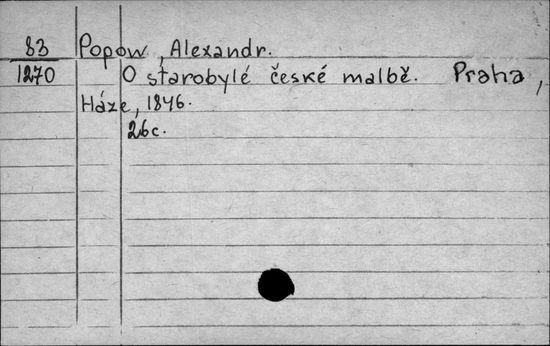 83 Popow, Alexandr.
1270 O starobylé české malbě. Praha,
Háze, 1846.
26c.